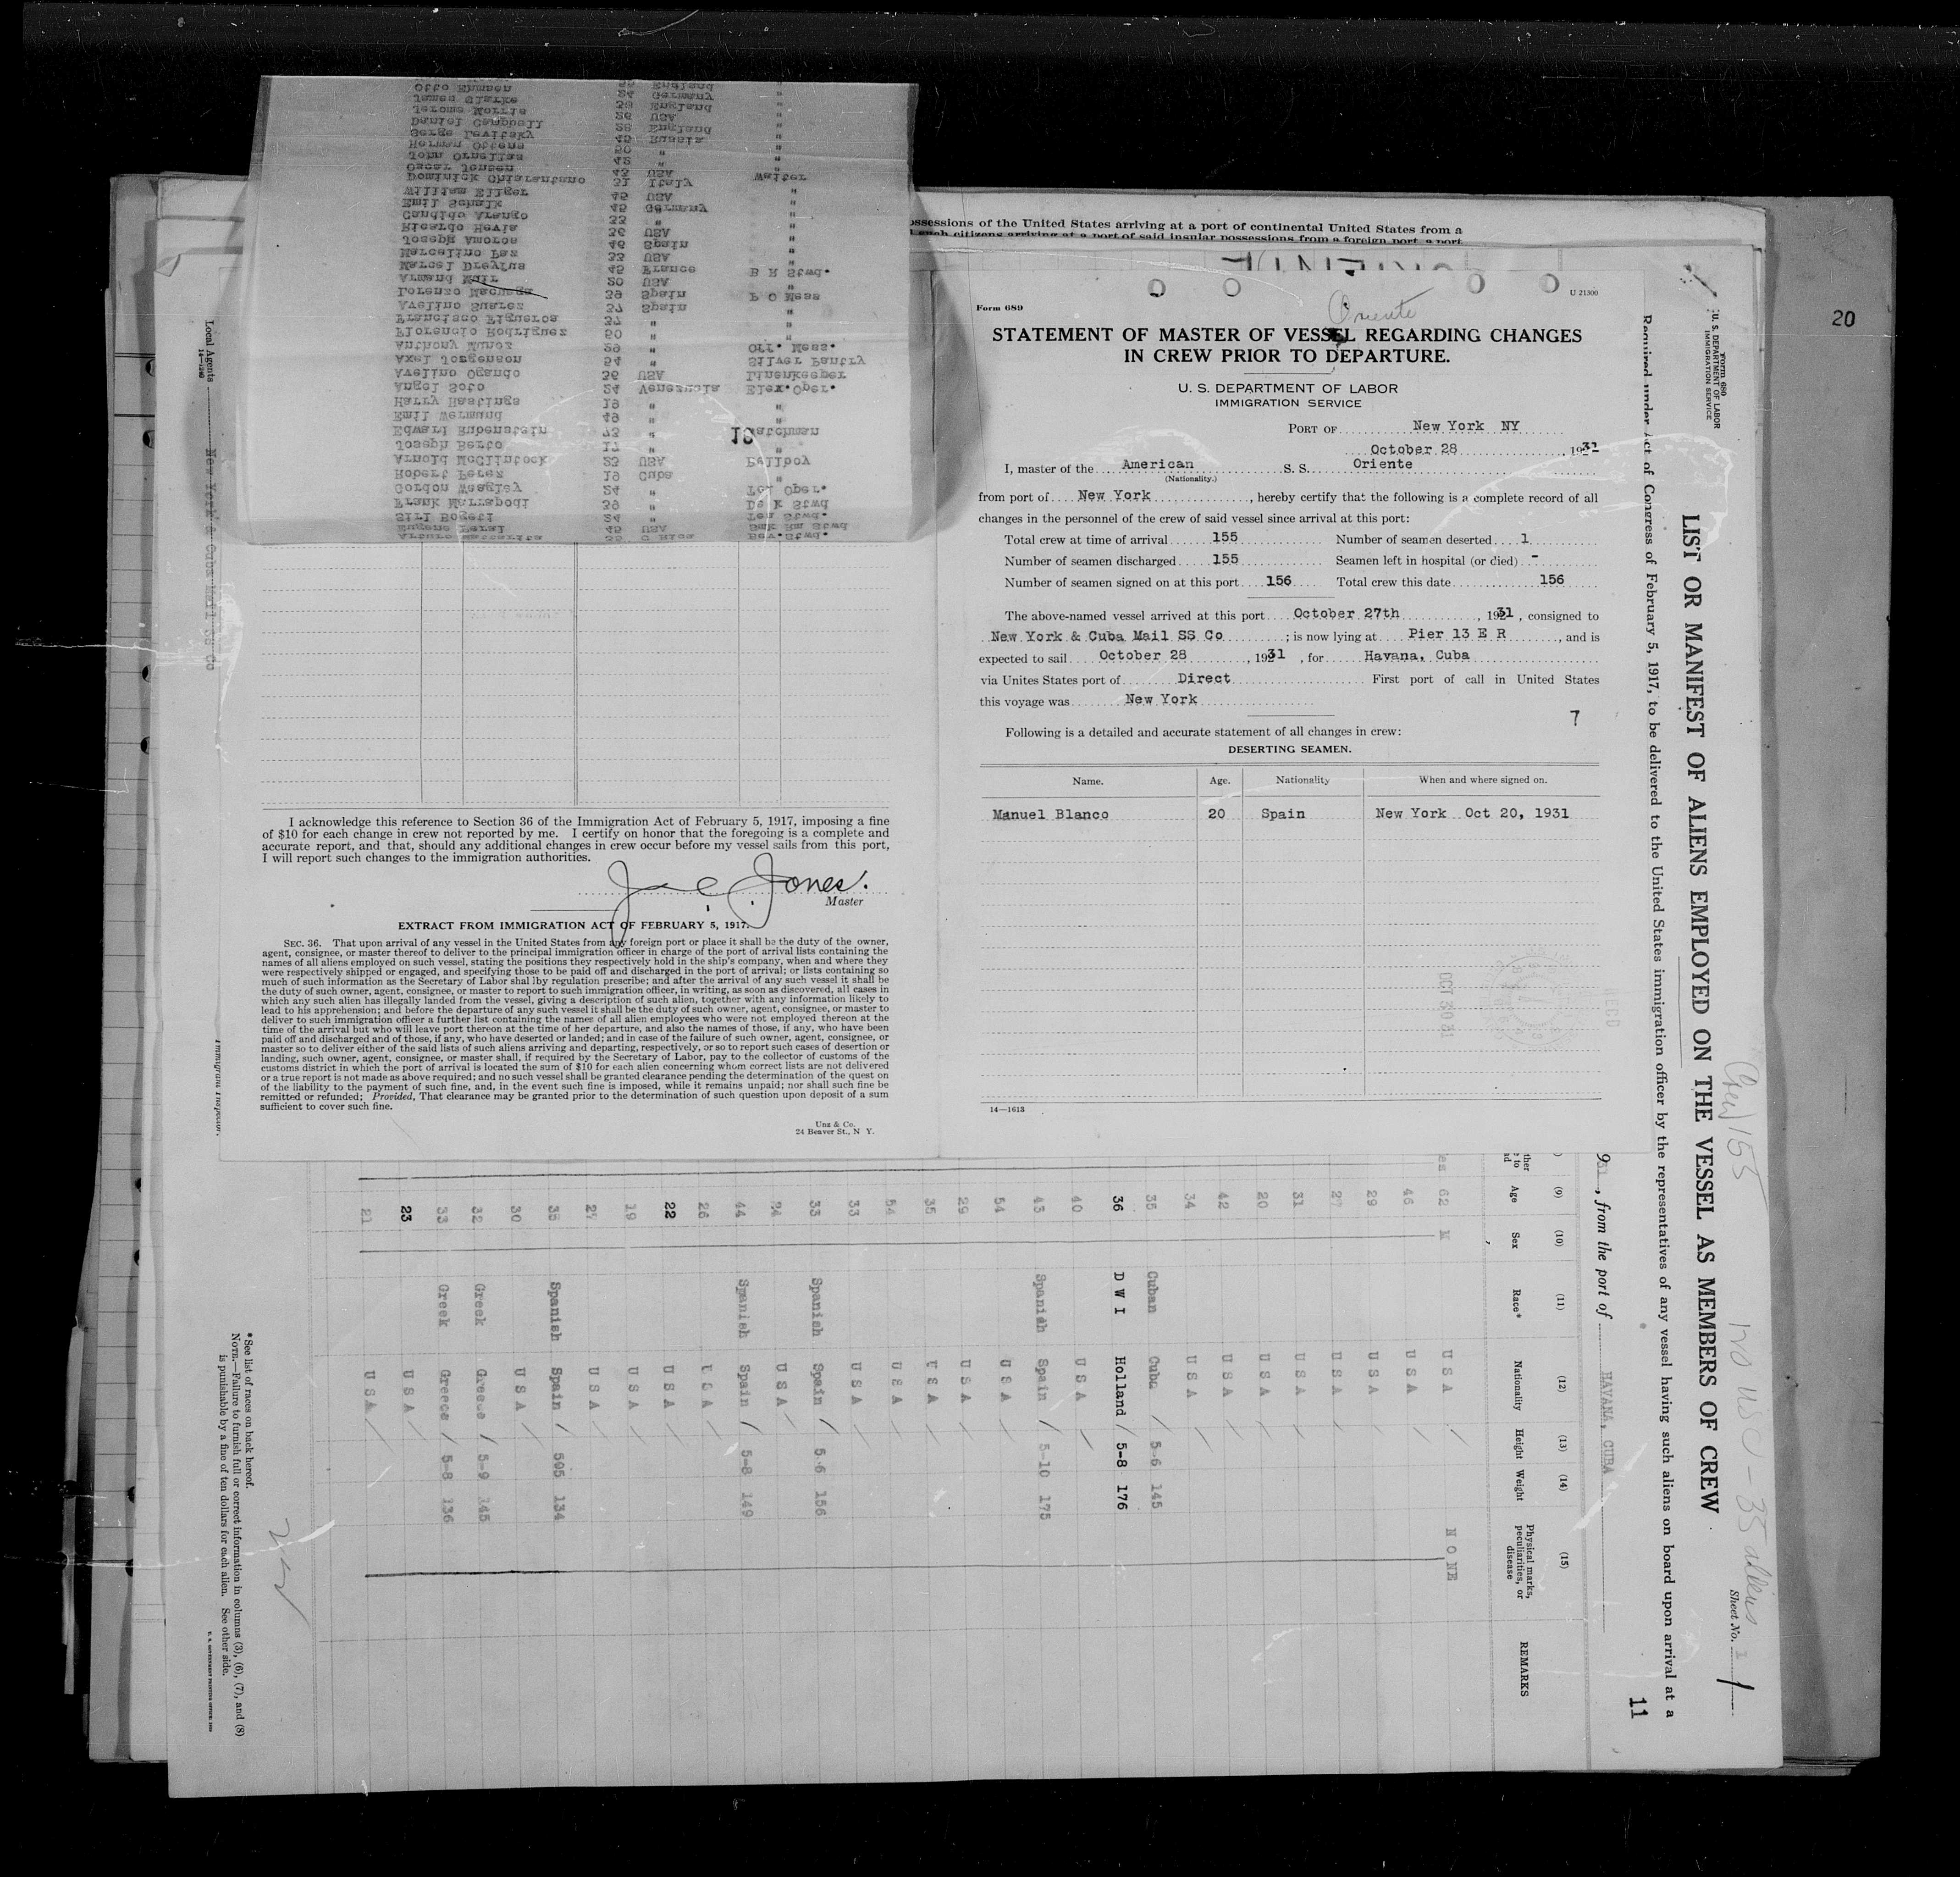 Otto Ehmsen 35 England "
James Clarke 24 Germany "
Jerome Morris 29 England "
Daniel Campbell 26 USA "
Serge Levitsky 45 Russia "
Herman Ottens 50 " "
John Ornellas 42 " "
Oscar Jensen 42 USA "
Dominick Chiarantano 31 Italy Waiter
William Eilger 45 USA "
Emil Schalk 45 Germany "
Candido Arango 33 " "
Ricardo Hevia 36 USA "
Joseph Amoros 46 Spain "
Marcelino Paz 33 USA "
Marcel Dreyfus 45 France B R Stwd.
Armand 50 USA "
Lorenzo 39 Spain P O Mess
Avelino Suarez 37 Spain "
Francisco Figueros 37 " "
Florencio Rodriguez 50 " "
Anthony Munoz 29 " Off. Mess.
Axel Jorgenson 54 " Silver Pantry
Avelino Ogando 36 USA Linenkeeper
Angel Soto 24 Venezuela Elev.Oper.
Harry Hastings 19 " "
Emil Wermund 49 " "
Edward Rubenstein 73 " Watchman
18
Joseph Berto 17 "
Arnold McClintock 23 USA Bellboy
Robert Perez 19 Cuba "
Gordon Weagley 24 " Tel Oper.
Frank Marrapodi 39 " De K Stwd
Sill Bogett 24 "
Eugene 45 USA Smk Rm Stwd
ssessions of the United States arriving at a port of continental United States from a
such citizens arriving at a port of said insular possessions from a foreign port, a port
20
U 21300
Form 689
Oriente
STATEMENT OF MASTER OF VESSEL REGARDING CHANGES
IN CREW PRIOR TO DEPARTURE.
U. S. DEPARTMENT OF LABOR
IMMIGRATION SERVICE
PORT OF New York NY
October 28, 1931
I, master of the American S. S. Oriente
(Nationality.)
from port of New York, hereby certify that the following is a complete record of all
changes in the personnel of the crew of said vessel since arrival at this port:
Total crew at time of arrival 155 Number of seamen deserted 1
Number of seamen discharged 155 Seamen left in hospital (or died) -
Number of seamen signed on at this port 156 Total crew this date 156
The above-named vessel arrived at this port October 27th, 1931, consigned to
New York & Cuba Mail SS Co; is now lying at Pier 13 E R, and is
expected to sail October 28, 1931, for Havana, Cuba
via Unites States port of Direct First port of call in United States
this voyage was New York
7
Following is a detailed and accurate statement of all changes in crew:
DESERTING SEAMEN.
Name. Age. Nationality When and where signed on.
Manuel Blanco 20 Spain New York Oct 20, 1931
OCT 30 31
RECD
14—1613
I acknowledge this reference to Section 36 of the Immigration Act of February 5, 1917, imposing a fine
of $10 for each change in crew not reported by me. I certify on honor that the foregoing is a complete and
accurate report, and that, should any additional changes in crew occur before my vessel sails from this port,
I will report such changes to the immigration authorities.
Jones.
Master
EXTRACT FROM IMMIGRATION ACT OF FEBRUARY 5, 1917.
SEC. 36. That upon arrival of any vessel in the United States from any foreign port or place it shall be the duty of the owner,
agent, consignee, or master thereof to deliver to the principal immigration officer in charge of the port of arrival lists containing the
names of all aliens employed on such vessel, stating the positions they respectively hold in the ship's company, when and where they
were respectively shipped or engaged, and specifying those to be paid off and discharged in the port of arrival; or lists containing so
much of such information as the Secretary of Labor shal lby regulation prescribe; and after the arrival of any such vessel it shall be
the duty of such owner, agent, consignee, or master to report to such immigration officer, in writing, as soon as discovered, all cases in
which any such alien has illegally landed from the vessel, giving a description of such alien, together with any information likely to
lead to his apprehension; and before the departure of any such vessel it shall be the duty of such owner, agent, consignee, or master to
deliver to such immigration officer a further list containing the names of all alien employees who were not employed thereon at the
time of the arrival but who will leave port thereon at the time of her departure, and also the names of those, if any, who have been
paid off and discharged and of those, if any, who have deserted or landed; and in case of the failure of such owner, agent, consignee, or
master so to deliver either of the said lists of such aliens arriving and departing, respectively, or so to report such cases of desertion or
landing, such owner, agent, consignee, or master shall, if required by the Secretary of Labor, pay to the collector of customs of the
customs district in which the port of arrival is located the sum of $10 for each alien concerning whom correct lists are not delivered
or a true report is not made as above required; and no such vessel shall be granted clearance pending the determination of the quest on
of the liability to the payment of such fine, and, in the event such fine is imposed, while it remains unpaid; nor shall such fine be
remitted or refunded; Provided, That clearance may be granted prior to the determination of such question upon deposit of a sum
sufficient to cover such fine.
Unz & Co.
24 Beaver St., N Y.
Local Agents New York & Cuba Mail SS Co
14—1240
Immigrant Inspector.
Form 680
U. S. DEPARTMENT OF LABOR
IMMIGRATION SERVICE
Crew 155 120 USC - 35 aliens
Sheet No. 1
LIST OR MANIFEST OF ALIENS EMPLOYED ON THE VESSEL AS MEMBERS OF CREW
Required under Act of Congress of February 5, 1917, to be delivered to the United States immigration officer by the representatives of any vessel having such aliens on board upon arrival at a
11
931, from the port of HAVANA, CUBA
(9) (10) (11) (12) (13) (14) (15)
Age Sex Race* Nationality Height Weight Physical marks, peculiarities, or disease REMARKS
62 M U S A NONE
46 U S A
29 U S A
27 U S A
31 U S A
20 U S A
42 U S A
34 U S A
35 Cuban Cuba 5-6 145
36 D W I Holland 5-8 176
40 U S A
43 Spanish Spain 5-10 175
54 U S A
29 U S A
35 U S A
54 U S A
33 U S A
33 Spanish Spain 5-6 156
24 U S A
44 Spanish Spain 5-8 149
26 U S A
22 U S A
19 U S A
27 U S A
35 Spanish Spain 505 134
30 U S A
32 Greek Greece 5-9 145
33 Greek Greece 5-8 136
23 U S A
21 U S A
*See list of races on back hereof.
NOTE.—Failure to furnish full or correct information in columns (3), (6), (7), and (8)
is punishable by a fine of ten dollars for each alien. See other side.